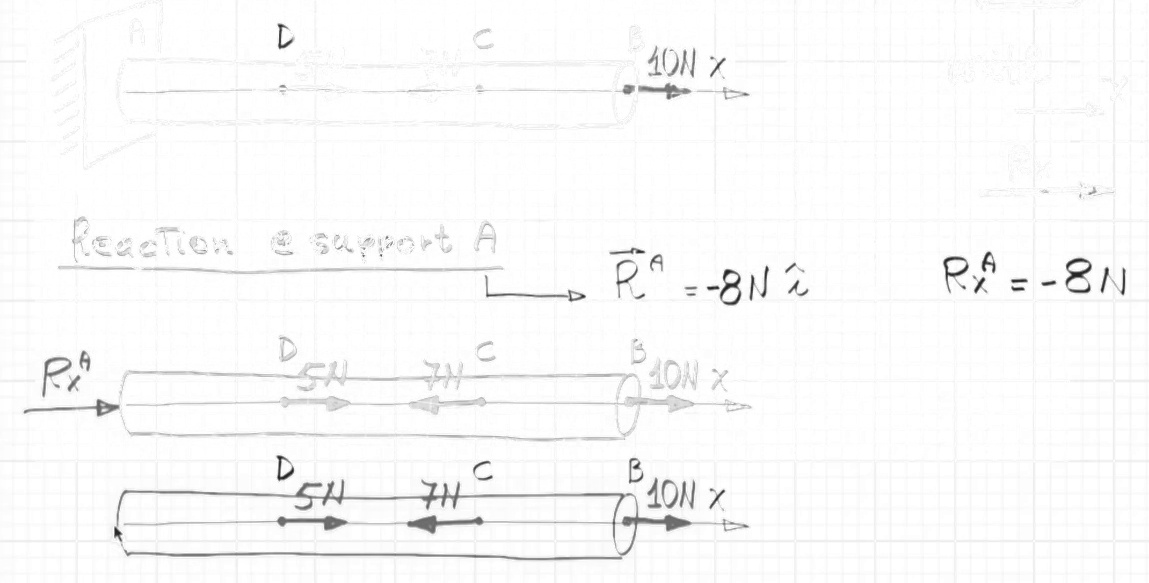 A D C B
5N 7N 10N x
Reaction @ support A
R^A = -8N î Rx^A = -8N
Rx^A D 5N 7N C B 10N x
D 5N 7N C B 10N x